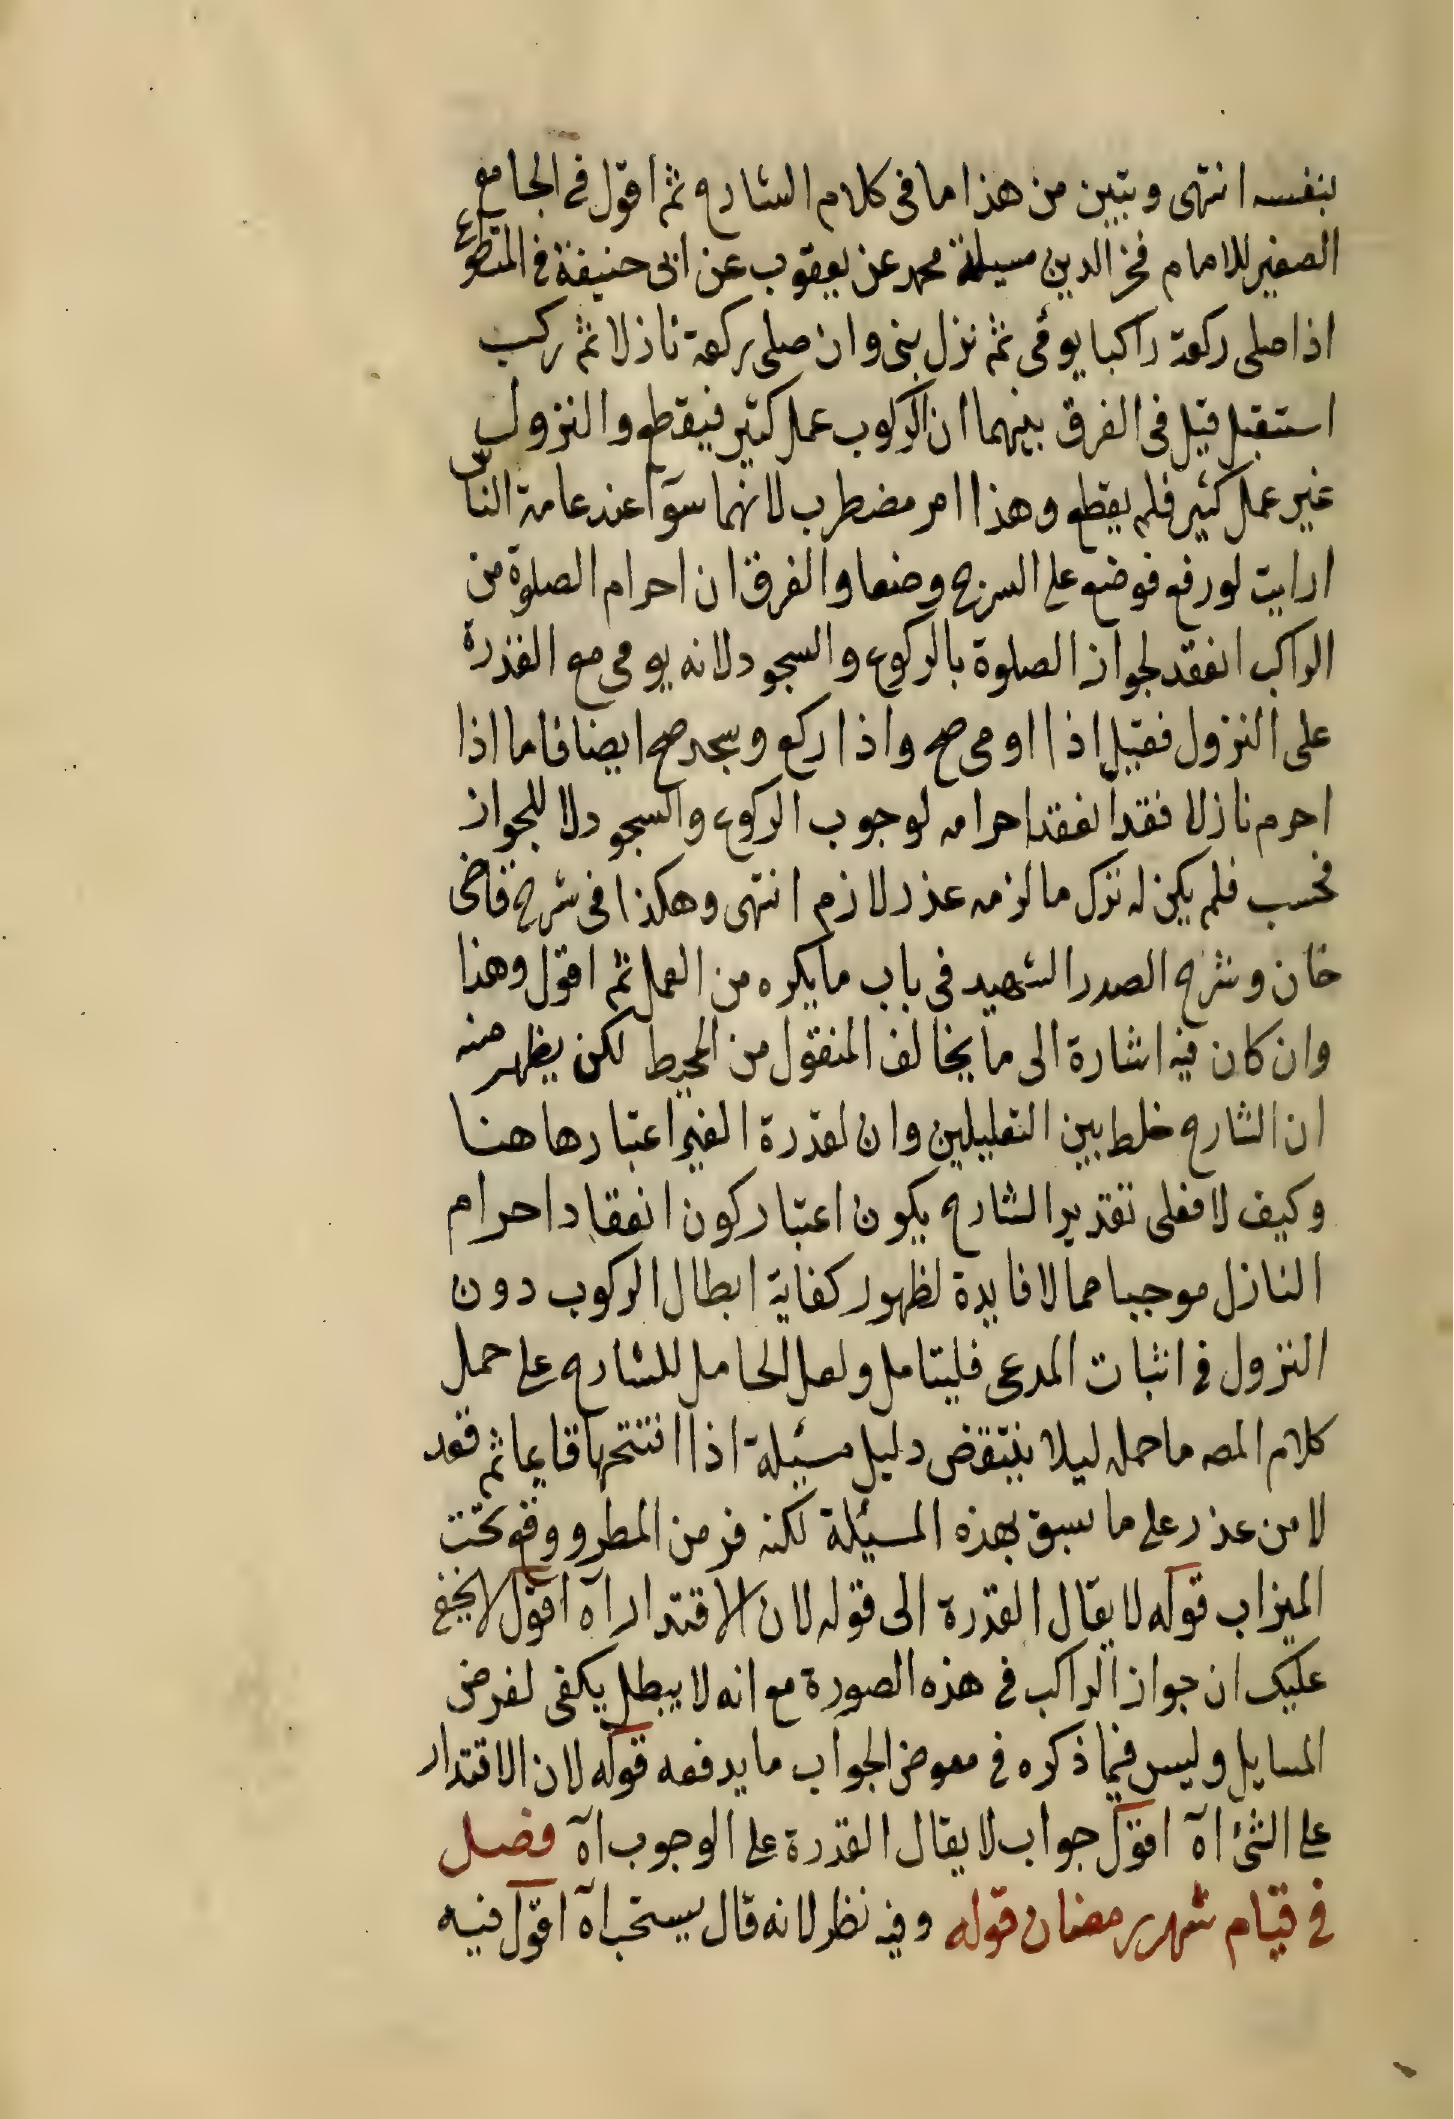 بنفسه انتهى وبتبين من هذا ما فى كلام الشارح ثم اقول فى الجامع
الصغير للامام فخر الدين مسيلة محمد عن يعقوب عن ابى حنيفة فى المتطوع
اذا صلى ركعة راكبا يومى ثم نزل بنى وان صلى ركعة نازلا ثم ركب
استقبل قيل فى الفرق بينهما ان الركوب عمل كثير فيقطع والنزول
غير عمل كثير فلم يقطع وهذا امر مضطرب لانهما سوآء عند عامة الناس
ارايت لو رفع فوضع على السرج وضعا والفرق ان احرام الصلوة من
الراكب انعقد لجواز الصلوة بالركوع والسجود لانه يومى مع القدرة
على النزول فقيل اذا اومى صح واذا ركع وسجد صح ايضا فاما اذا
احرم نازلا فقد انعقد احرامه لوجوب الركوع والسجود لا للجواز
فحسب فلم يكن له ترك ما لزمه عذر لازم انتهى وهكذا فى شرح قاضى
خان وشرح الصدر الشهيد فى باب ما يكره من العمل ثم اقول وهذا
وان كان فيه اشارة الى ما يخالف المنقول من المحيط لكن يظهر منه
ان الشارح خلط بين التعليلين وان لقدرة الغير اعتبارها هنا
وكيف لا فعلى تقدير الشارح يكون اعتبار كون انعقاد احرام
النازل موجبا مما لا فايدة لظهور كفاية ابطال الركوب دون
النزول فى اثبات المدعى فليتامل ولعل الحامل للشارح على حمل
كلام المصه ما حمله ليلا ينتقض دليل مسئيلة اذا افتتحها قايما ثم قعد
لا من عذر على ما سبق بهذه المسئيلة لكنه فر من المطر ووقع تحت
الميزاب قوله لا يقال القدرة الى قوله لان الاقتدار آه اقول لا يخفى
عليك ان جواز الراكب فى هذه الصورة مع انه لا يبطل يكفى لفرض
المسايل وليس فيما ذكره فى معرض الجواب ما يدفعه قوله لان الاقتدار
على الشئ آه اقول جواب لا يقال القدرة على الوجوب آه فصل
فى قيام شهر رمضان قوله وفيه نظر لانه قال يستحب آه اقول فيه